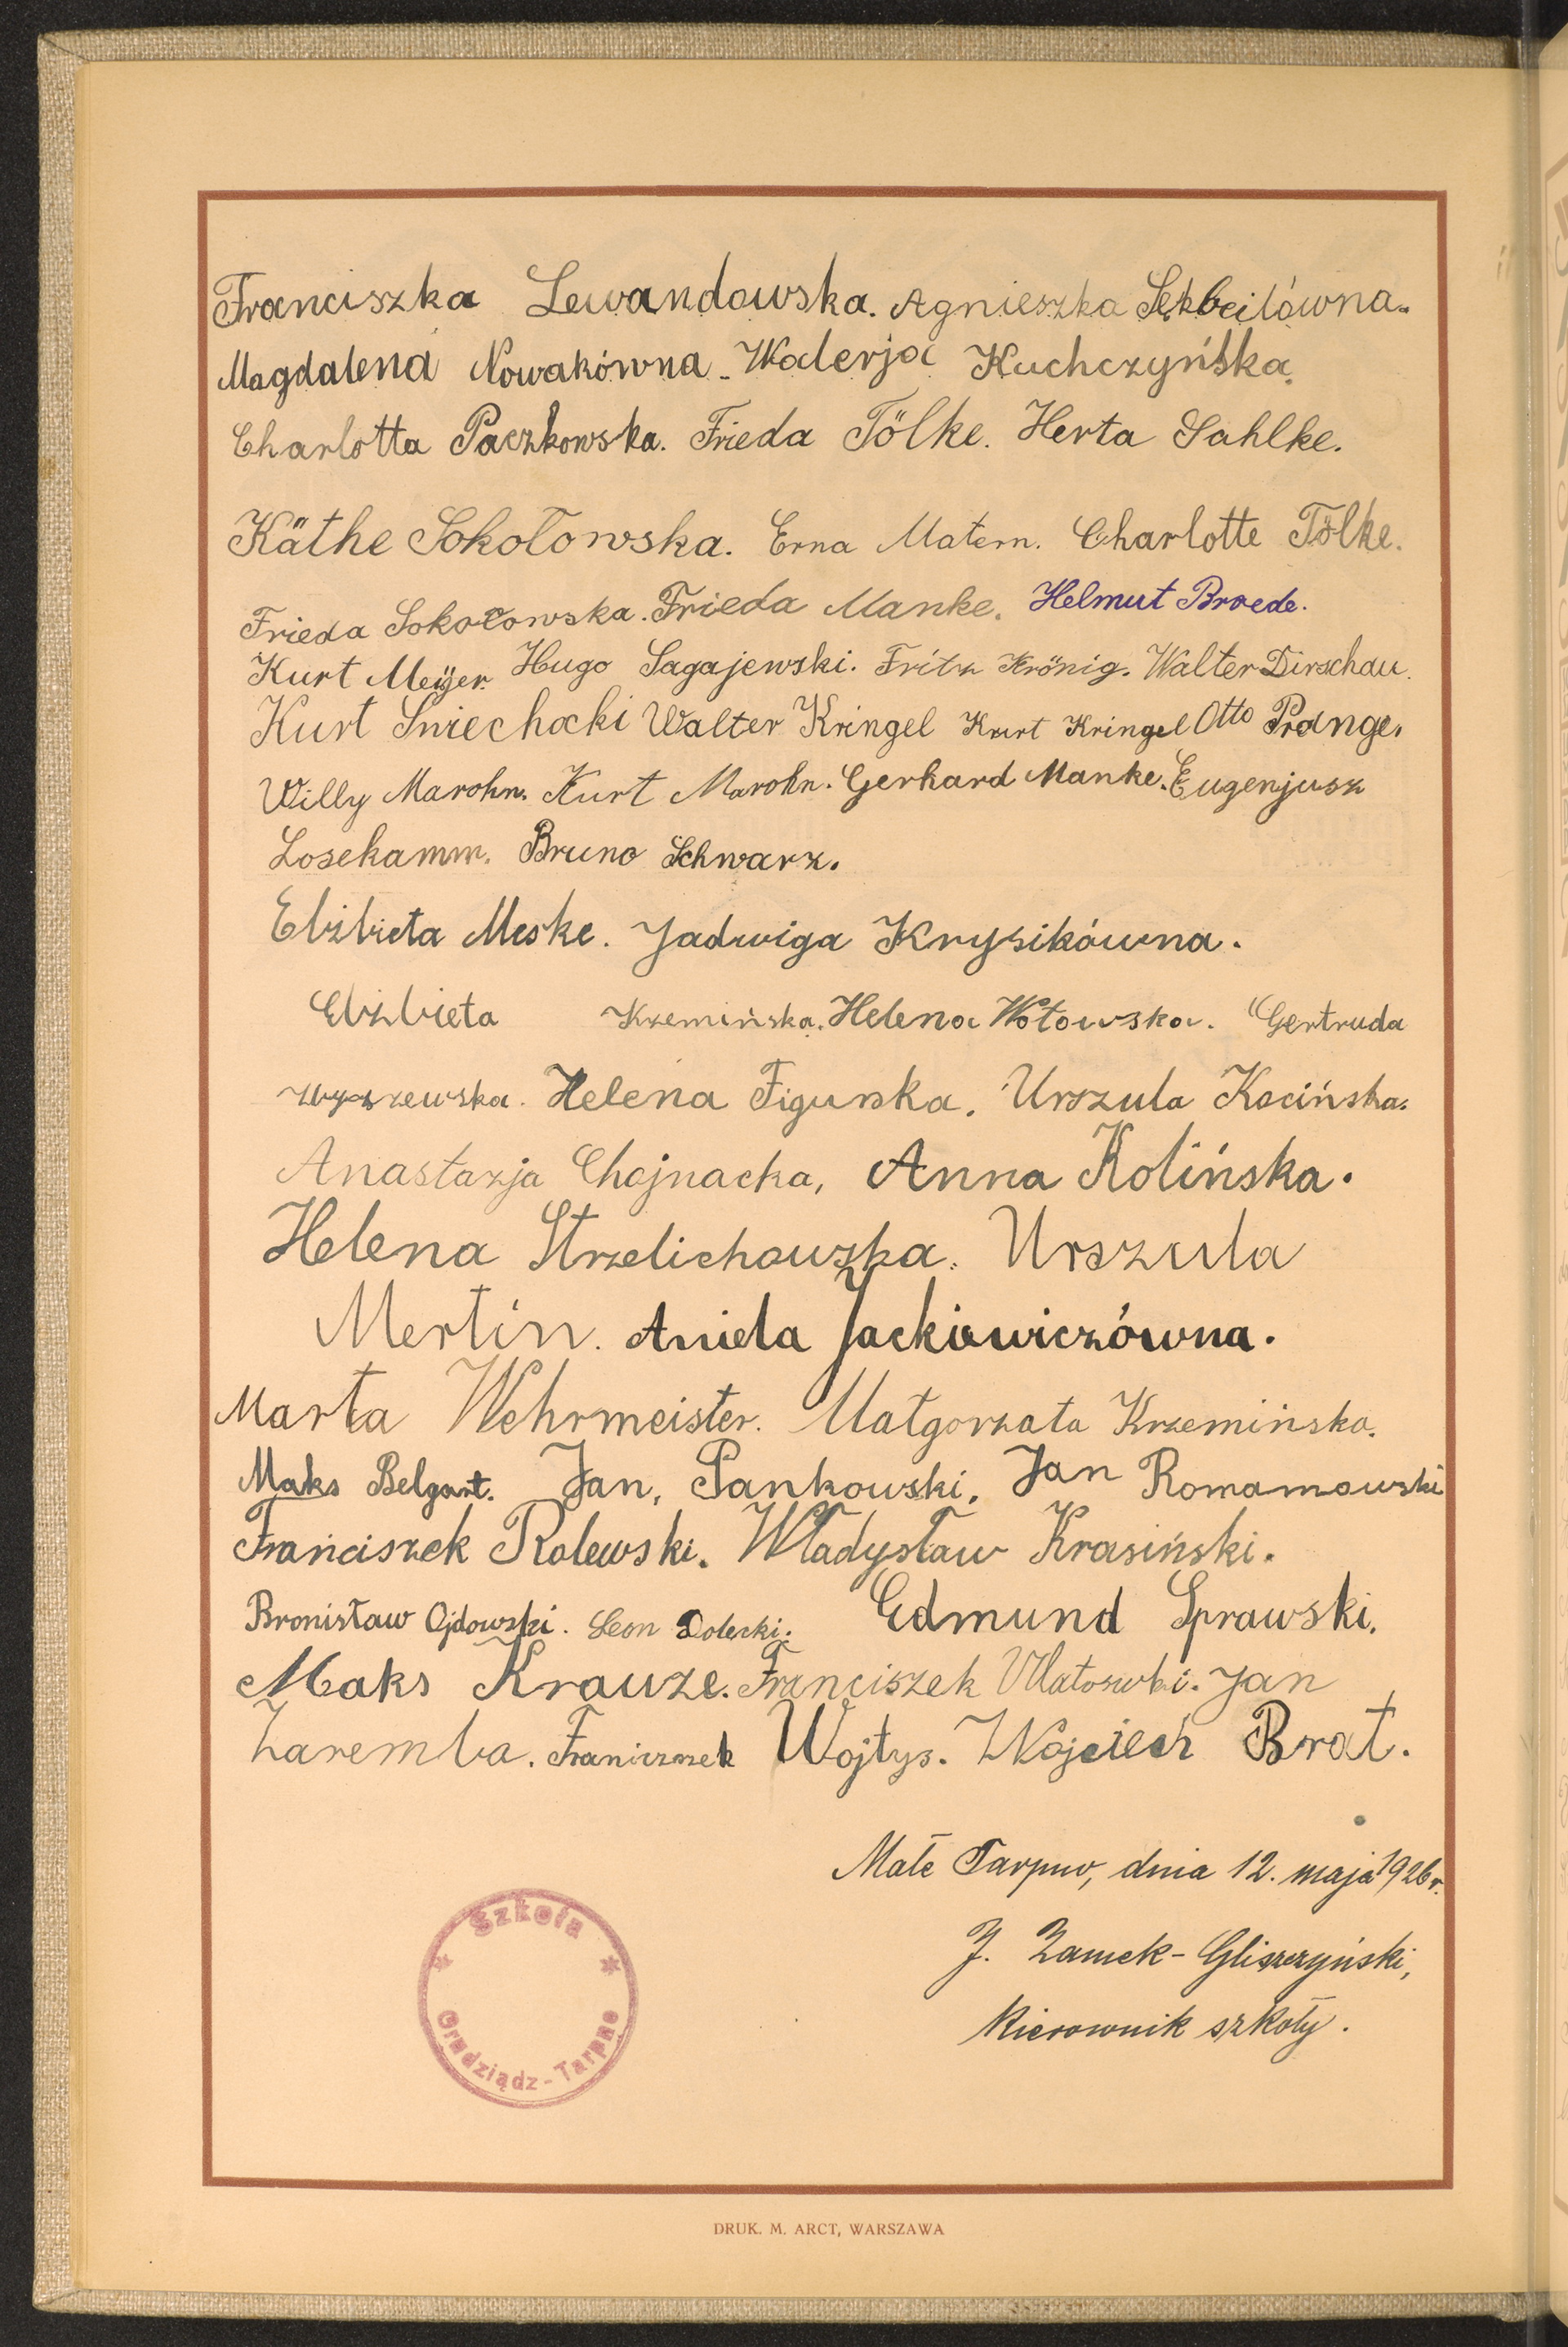 Franciszka Lewandowska. Agnieszka Sękbeilówna.
Magdalena Nowakówna. Walerja Kuchczyńska.
Charlotta Paczkowska. Frieda Tölke. Herta Sahlke.
Käthe Sokołowska. Erna Matern. Charlotte Tölke.
Frieda Sokołowska. Frieda Manke. Helmut Broede.
Kurt Meÿer. Hugo Sagajewski. Fritz Krönig. Walter Dirschau.
Kurt Sniechocki Walter Kringel Kurt Kringel Otto Prange.
Willy Marohn. Kurt Marohn. Gerhard Manke. Eugenjusz
Losekamm. Bruno Schwarz.
Elżbieta Meske. Jadwiga Krysikówna.
Elżbieta Krzemińska. Helena Wołowska. Gertruda
Helena Figurska. Urszula Kocińska.
Anastazja Chojnacka, Anna Kolińska.
Helena Strzelichowska. Urszula
Mertin. Aniela Jackiewiczówna.
Marta Wehrmeister. Małgorzata Krzemińska.
Maks Belgart. Jan, Pankowski. Jan Romanowski
Franciszek Rolewski. Władysław Krasiński.
Bronisław Ojdowski. Leon Dolecki. Edmund Sprawski.
Maks Krauze. Franciszek Jan
Zaremba. Franciszek Wojtys. Wojciech Brat.
Małe Tarpno, dnia 12. maja 1926 r.
J. Zamek-Gliszczyński,
kierownik szkoły.
* Szkoła *
Grudziądz-Tarpno
DRUK. M. ARCT, WARSZAWA